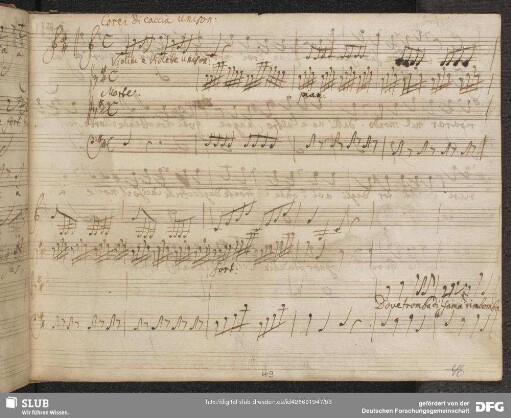 Corni di caccia unison:
Violini e Violette unison:
Marte.
pian:
fort:
Dove tromba di fama rimbomba
49
48
SLUB
Wir führen Wissen.
http://digital.slub-dresden.de/id426681947/93
gefördert von der
Deutschen Forschungsgemeinschaft
DFG